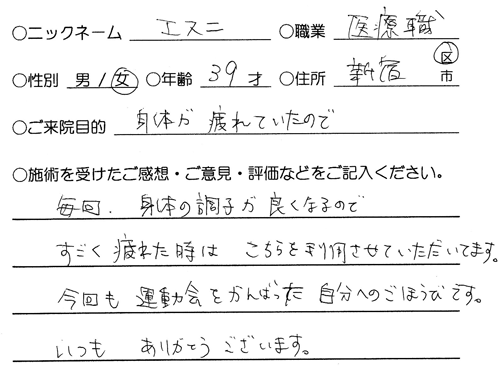 ○ニックネーム エスニ ○職業 医療職
○性別 男 / 女 ○年齢 39 才 ○住所 新宿 区 市
○ご来院目的 身体が疲れていたので
○施術を受けたご感想・ご意見・評価などをご記入ください。
毎回、身体の調子が良くなるので
すごく疲れた時は こちらを利用させていただいてます。
今回も運動会をがんばった自分へのごほうびです。
いつも ありがとうございます。